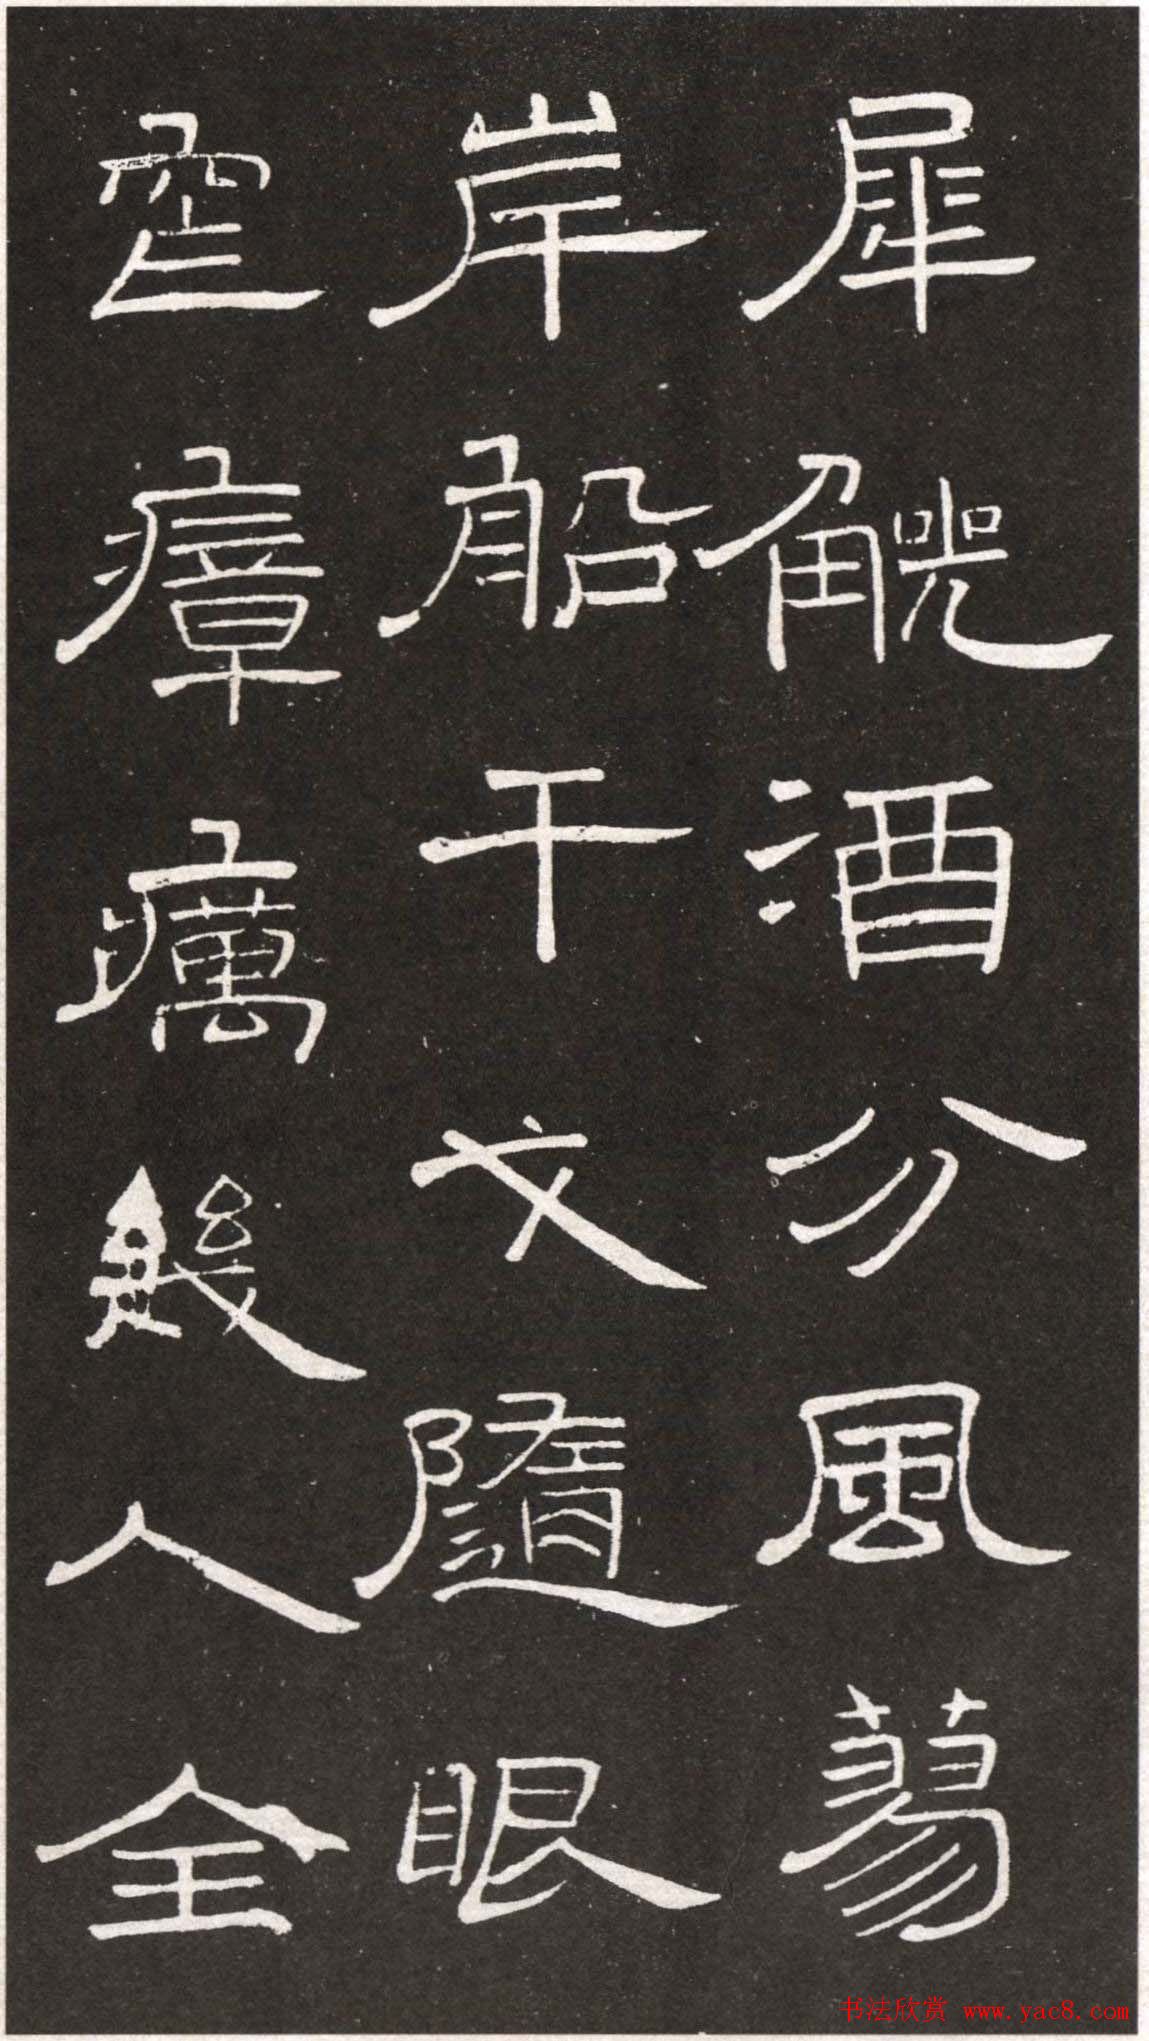 犀觥酒分風蕩
岸船干戈隨眼
瘴癘幾人全
书法欣赏 www.yac8.com